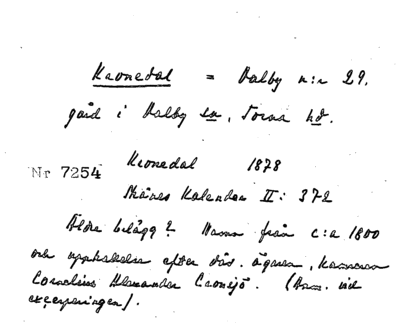 Kronedal = Dalby n:r 29.
gård i Dalby sn, Torna hd.
Nr 7254 Kronedal 1878
Skånes Kalender II: 372
Äldre belägg? Namn från c:a 1800
och uppkallelse efter dåv. ägaren, kamrer
Cornelius Alexander Cronsjö. (Anm. vid
excerperingen).